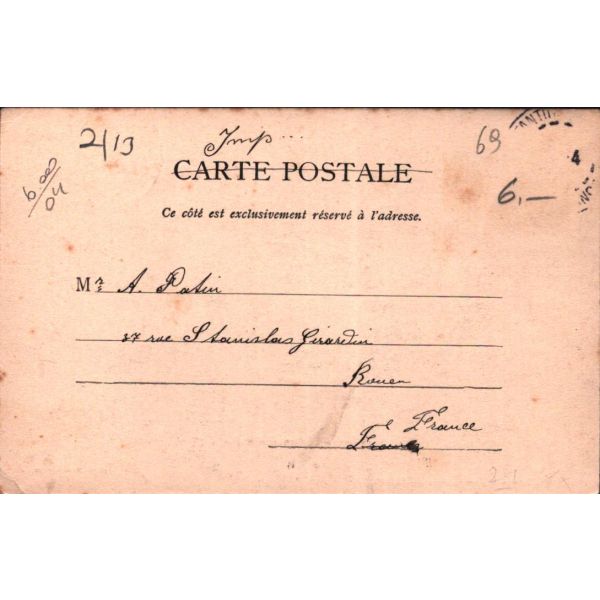 2/13
Imp...
69
ANTIN
4
6.00
04
CARTE POSTALE
6,—
Ce côté est exclusivement réservé à l'adresse.
Mr A. Patin
37 rue Stanislas Girardin
Rouen
France
France